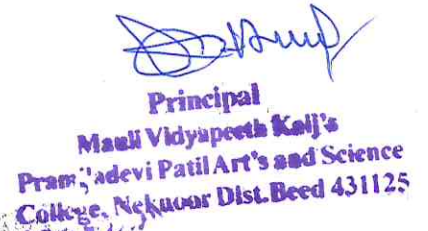 Principal
Mauli Vidyapeeth Kaij's
Pramiladevi Patil Art's and Science
College, Neknoor Dist. Beed 431125